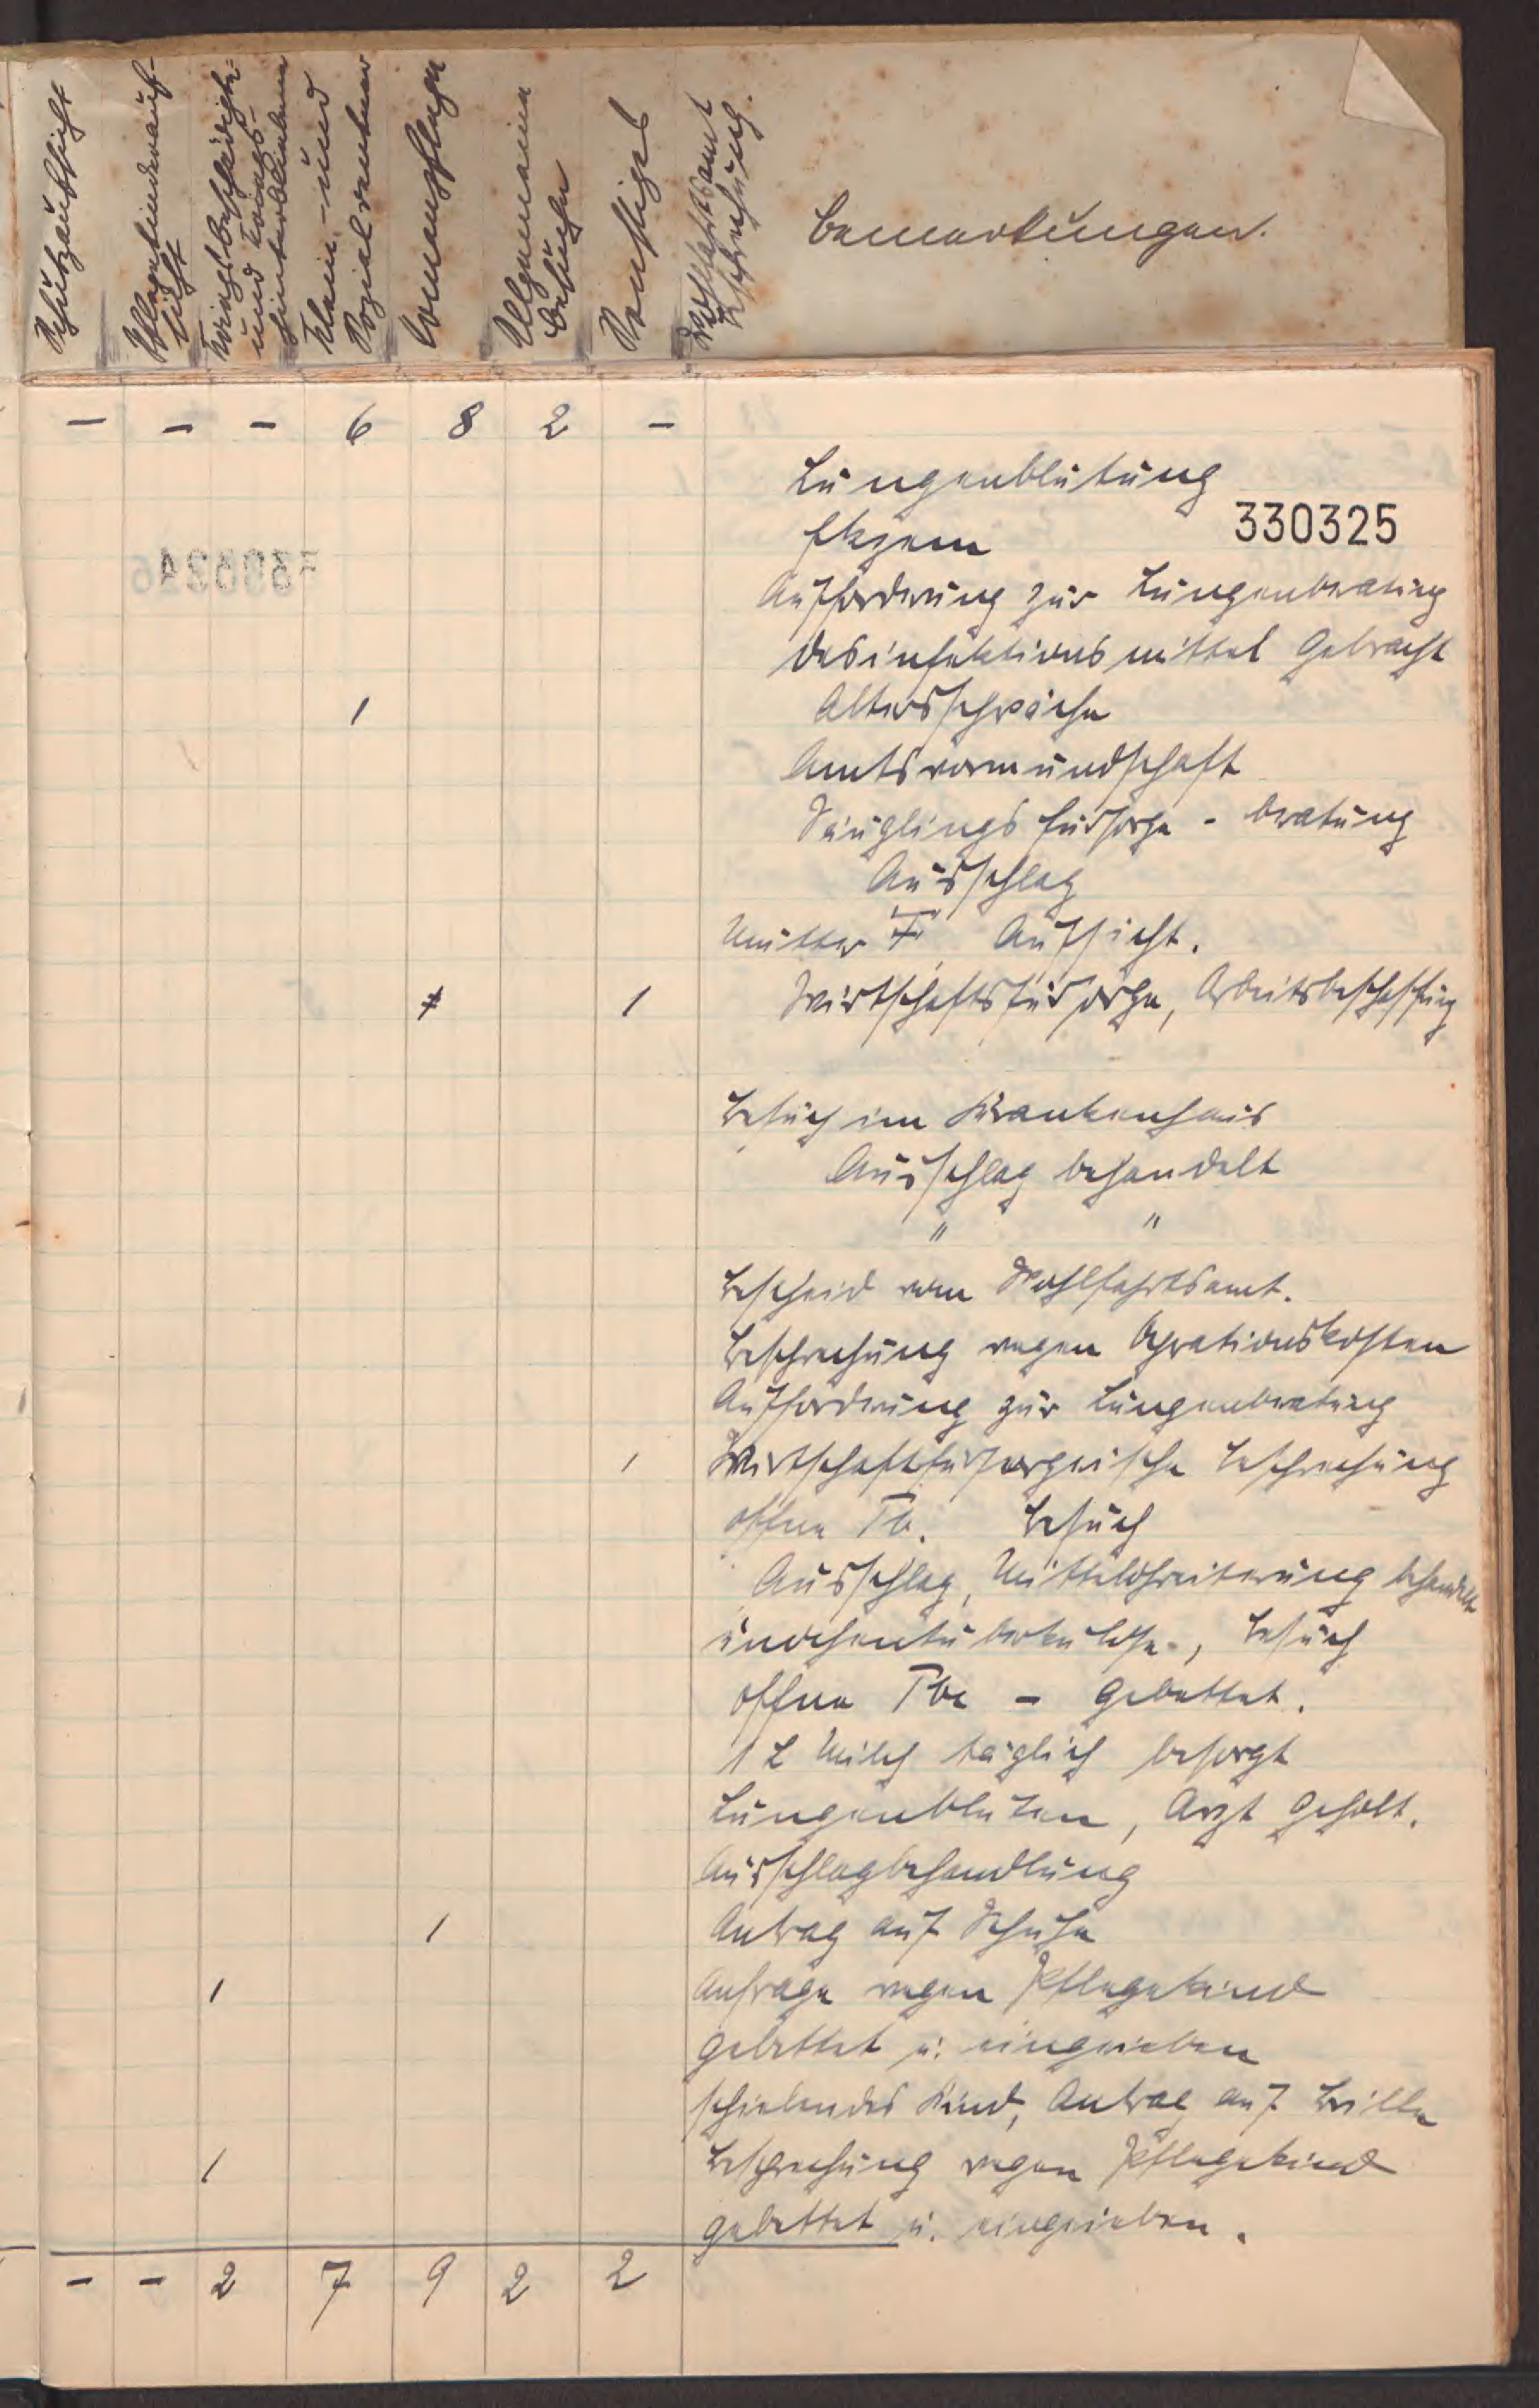 Schutzaufsicht
Pflegekinderauf-
sicht
Kriegsbeschädigte
und Kriegs-
hinterbliebene
Klein- und
Sozialrentner
Armenpflege
Allgemeine
Besuche
Sonstiges
Wohlfahrtsamt
Besprechung.
Bemerkungen.
— – – 6 8 2 –
Lungenblutung
330325
Ekzem
Aufforderung zur Lungenberatung
Desinfektionsmittel gebracht
1 Altersschwäche
Amtsvormundschaft
Säuglingsfürsorge - beratung
Ausschlag
Mutter Aufsicht.
1 Wirtschaftsfürsorge, Arbeitsbeschaffung
Besuch im Krankenhaus
Ausschlag behandelt
" "
Bescheid vom Wohlfahrtsamt.
Besprechung wegen Operationskosten
Aufforderung zur Lungenberatung
1 Wirtschaftsfürsorgerische Besprechung
offene Tb. Besuch
Ausschlag, Mittelohreiterung behandelt
Besuch
offene Tbc – gebettet.
1 L Milch täglich besorgt
Lungenbluten, Arzt geholt.
Ausschlagbehandlung
1 Antrag auf Schuhe
1 Anfrage wegen Pflegekind
gebettet u. eingerieben
schielendes Kind, Antrag auf Brille
1 Besprechung wegen Pflegekind
gebettet u. eingerieben.
– – 2 7 9 2 2